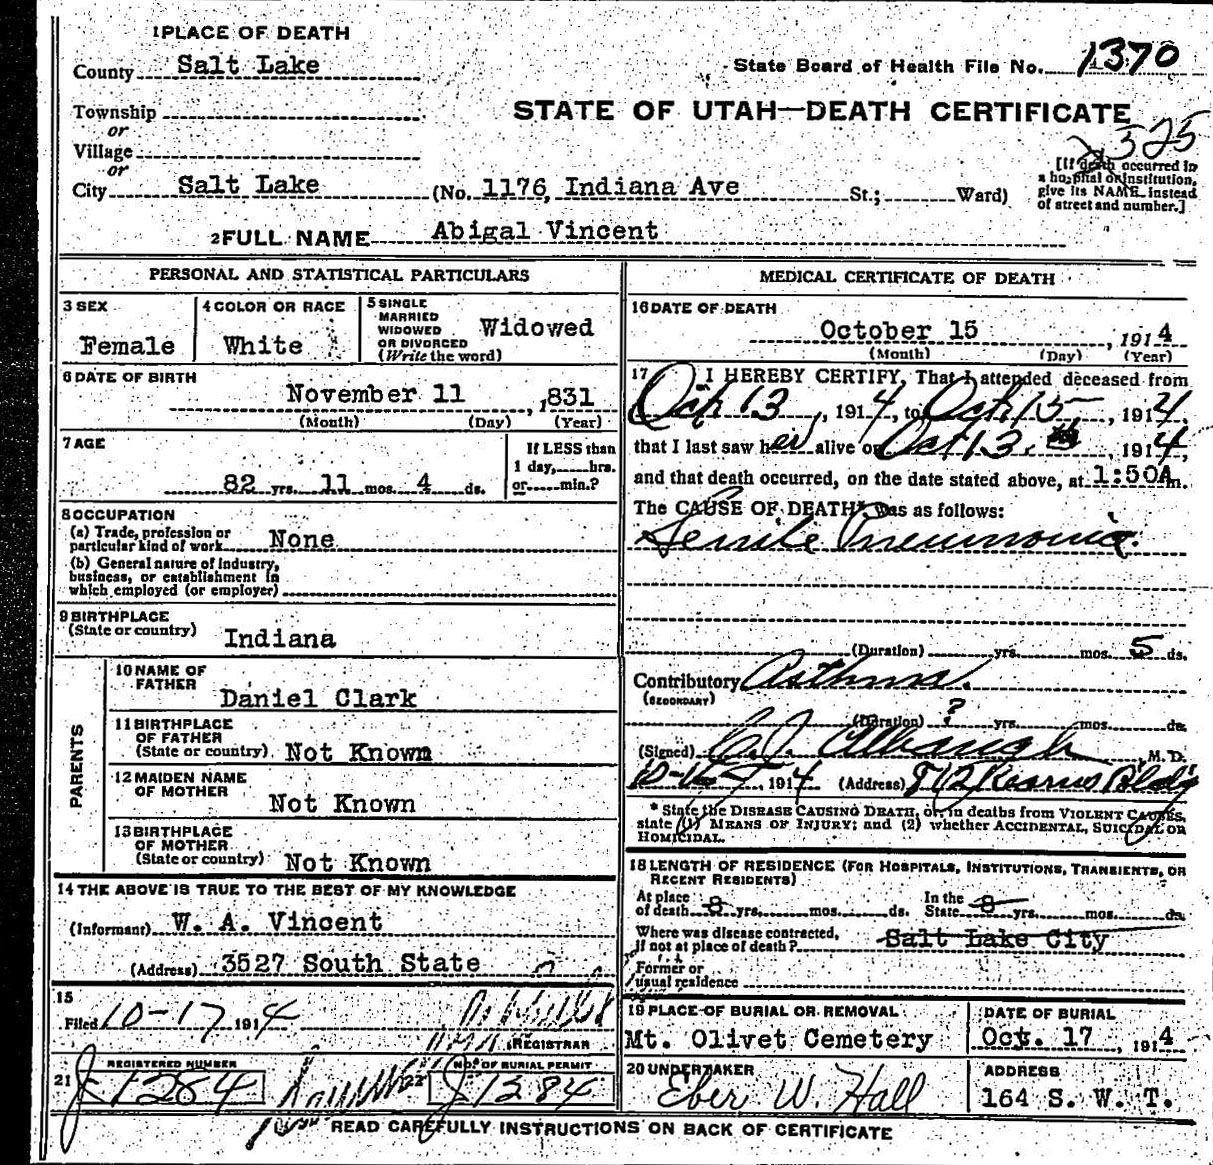 1 PLACE OF DEATH
County Salt Lake
State Board of Health File No. 1370
Township
STATE OF UTAH—DEATH CERTIFICATE
or
Village
or
2525
[If death occurred in a hospital or institution, give its NAME instead of street and number.]
City Salt Lake (No. 1176, Indiana Ave St.; Ward)
2 FULL NAME Abigal Vincent
PERSONAL AND STATISTICAL PARTICULARS
3 SEX
Female
4 COLOR OR RACE
White
5 SINGLE
MARRIED
WIDOWED
OR DIVORCED
(Write the word)
Widowed
6 DATE OF BIRTH
November 11, 1831
(Month) (Day) (Year)
7 AGE
82 yrs. 11 mos. 4 ds.
If LESS than
1 day, hrs.
or min.?
8 OCCUPATION
(a) Trade, profession or
particular kind of work None
(b) General nature of industry,
business, or establishment in
which employed (or employer)
9 BIRTHPLACE
(State or country) Indiana
PARENTS
10 NAME OF
FATHER
Daniel Clark
11 BIRTHPLACE
OF FATHER
(State or country) Not Known
12 MAIDEN NAME
OF MOTHER
Not Known
13 BIRTHPLACE
OF MOTHER
(State or country) Not Known
14 THE ABOVE IS TRUE TO THE BEST OF MY KNOWLEDGE
(Informant) W. A. Vincent
(Address) 3527 South State
15
Filed 10-17 1914
REGISTRAR
REGISTERED NUMBER
21 J 1284
No. OF BURIAL PERMIT
22 J 1384
MEDICAL CERTIFICATE OF DEATH
16 DATE OF DEATH
October 15, 1914
(Month) (Day) (Year)
17 I HEREBY CERTIFY, That I attended deceased from
Oct 13, 1914, to Oct 15, 1914,
that I last saw her alive on Oct 13, 1914,
and that death occurred, on the date stated above, at 1:50A m.
The CAUSE OF DEATH* was as follows:
Senile Pneumonia.
(Duration) yrs. mos. 5 ds.
Contributory Asthma.
(SECONDARY)
(Duration) ? yrs. mos. ds.
(Signed) C. J. Albaugh, M.D.
1914 (Address) 812 Kearns Bldg
* State the DISEASE CAUSING DEATH, or, in deaths from VIOLENT CAUSES,
state (1) MEANS OF INJURY; and (2) whether ACCIDENTAL, SUICIDAL OR
HOMICIDAL.
18 LENGTH OF RESIDENCE (FOR HOSPITALS, INSTITUTIONS, TRANSIENTS, OR
RECENT RESIDENTS)
At place
of death 8 yrs. mos. ds.
In the
State 8 yrs. mos. ds.
Where was disease contracted,
if not at place of death? Salt Lake City
Former or
usual residence
19 PLACE OF BURIAL OR REMOVAL
Mt. Olivet Cemetery
DATE OF BURIAL
Oct. 17, 1914
20 UNDERTAKER
Eber W. Hall
ADDRESS
164 S. W. T.
READ CAREFULLY INSTRUCTIONS ON BACK OF CERTIFICATE